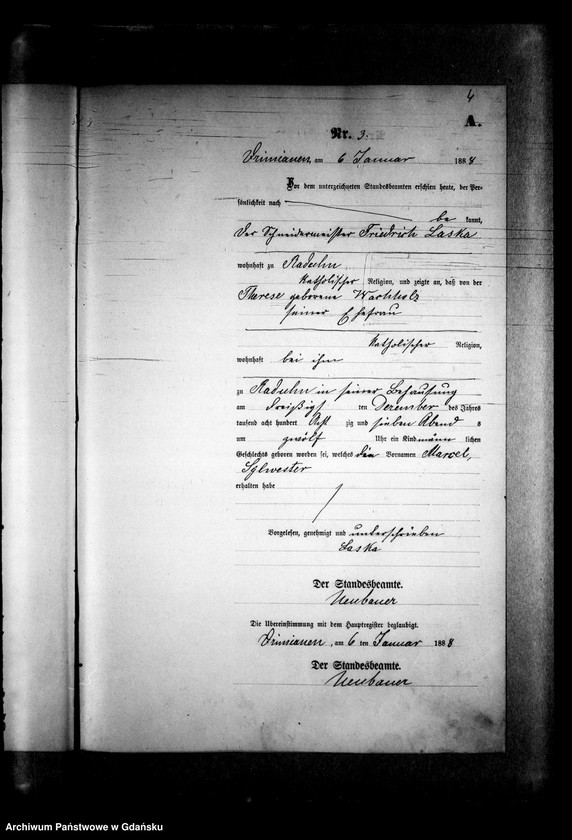 4
A.
Nr. 3.
am 6 Januar 1888
Vor dem unterzeichneten Standesbeamten erschien heute, der Per-
sönlichkeit nach
be kannt,
der Schneidermeister Friedrich Laska
wohnhaft zu Raduhn
katholischer Religion, und zeigte an, daß von der
Therese geborene Wachholz
seiner Ehefrau
katholischer Religion,
wohnhaft bei ihm
zu Raduhn in seiner Behausung
am dreißigst ten Dezember des Jahres
tausend acht hundert acht zig und sieben Abend s
um zwölf Uhr ein Kind männ lichen
Geschlechts geboren worden sei, welches die Vornamen Marcel,
Sylwester
erhalten habe
Vorgelesen, genehmigt und unterschrieben
Laska
Der Standesbeamte.
Neubauer
Die Übereinstimmung mit dem Hauptregister beglaubigt.
am 6 ten Januar 1888
Der Standesbeamte.
Neubauer
Archiwum Państwowe w Gdańsku